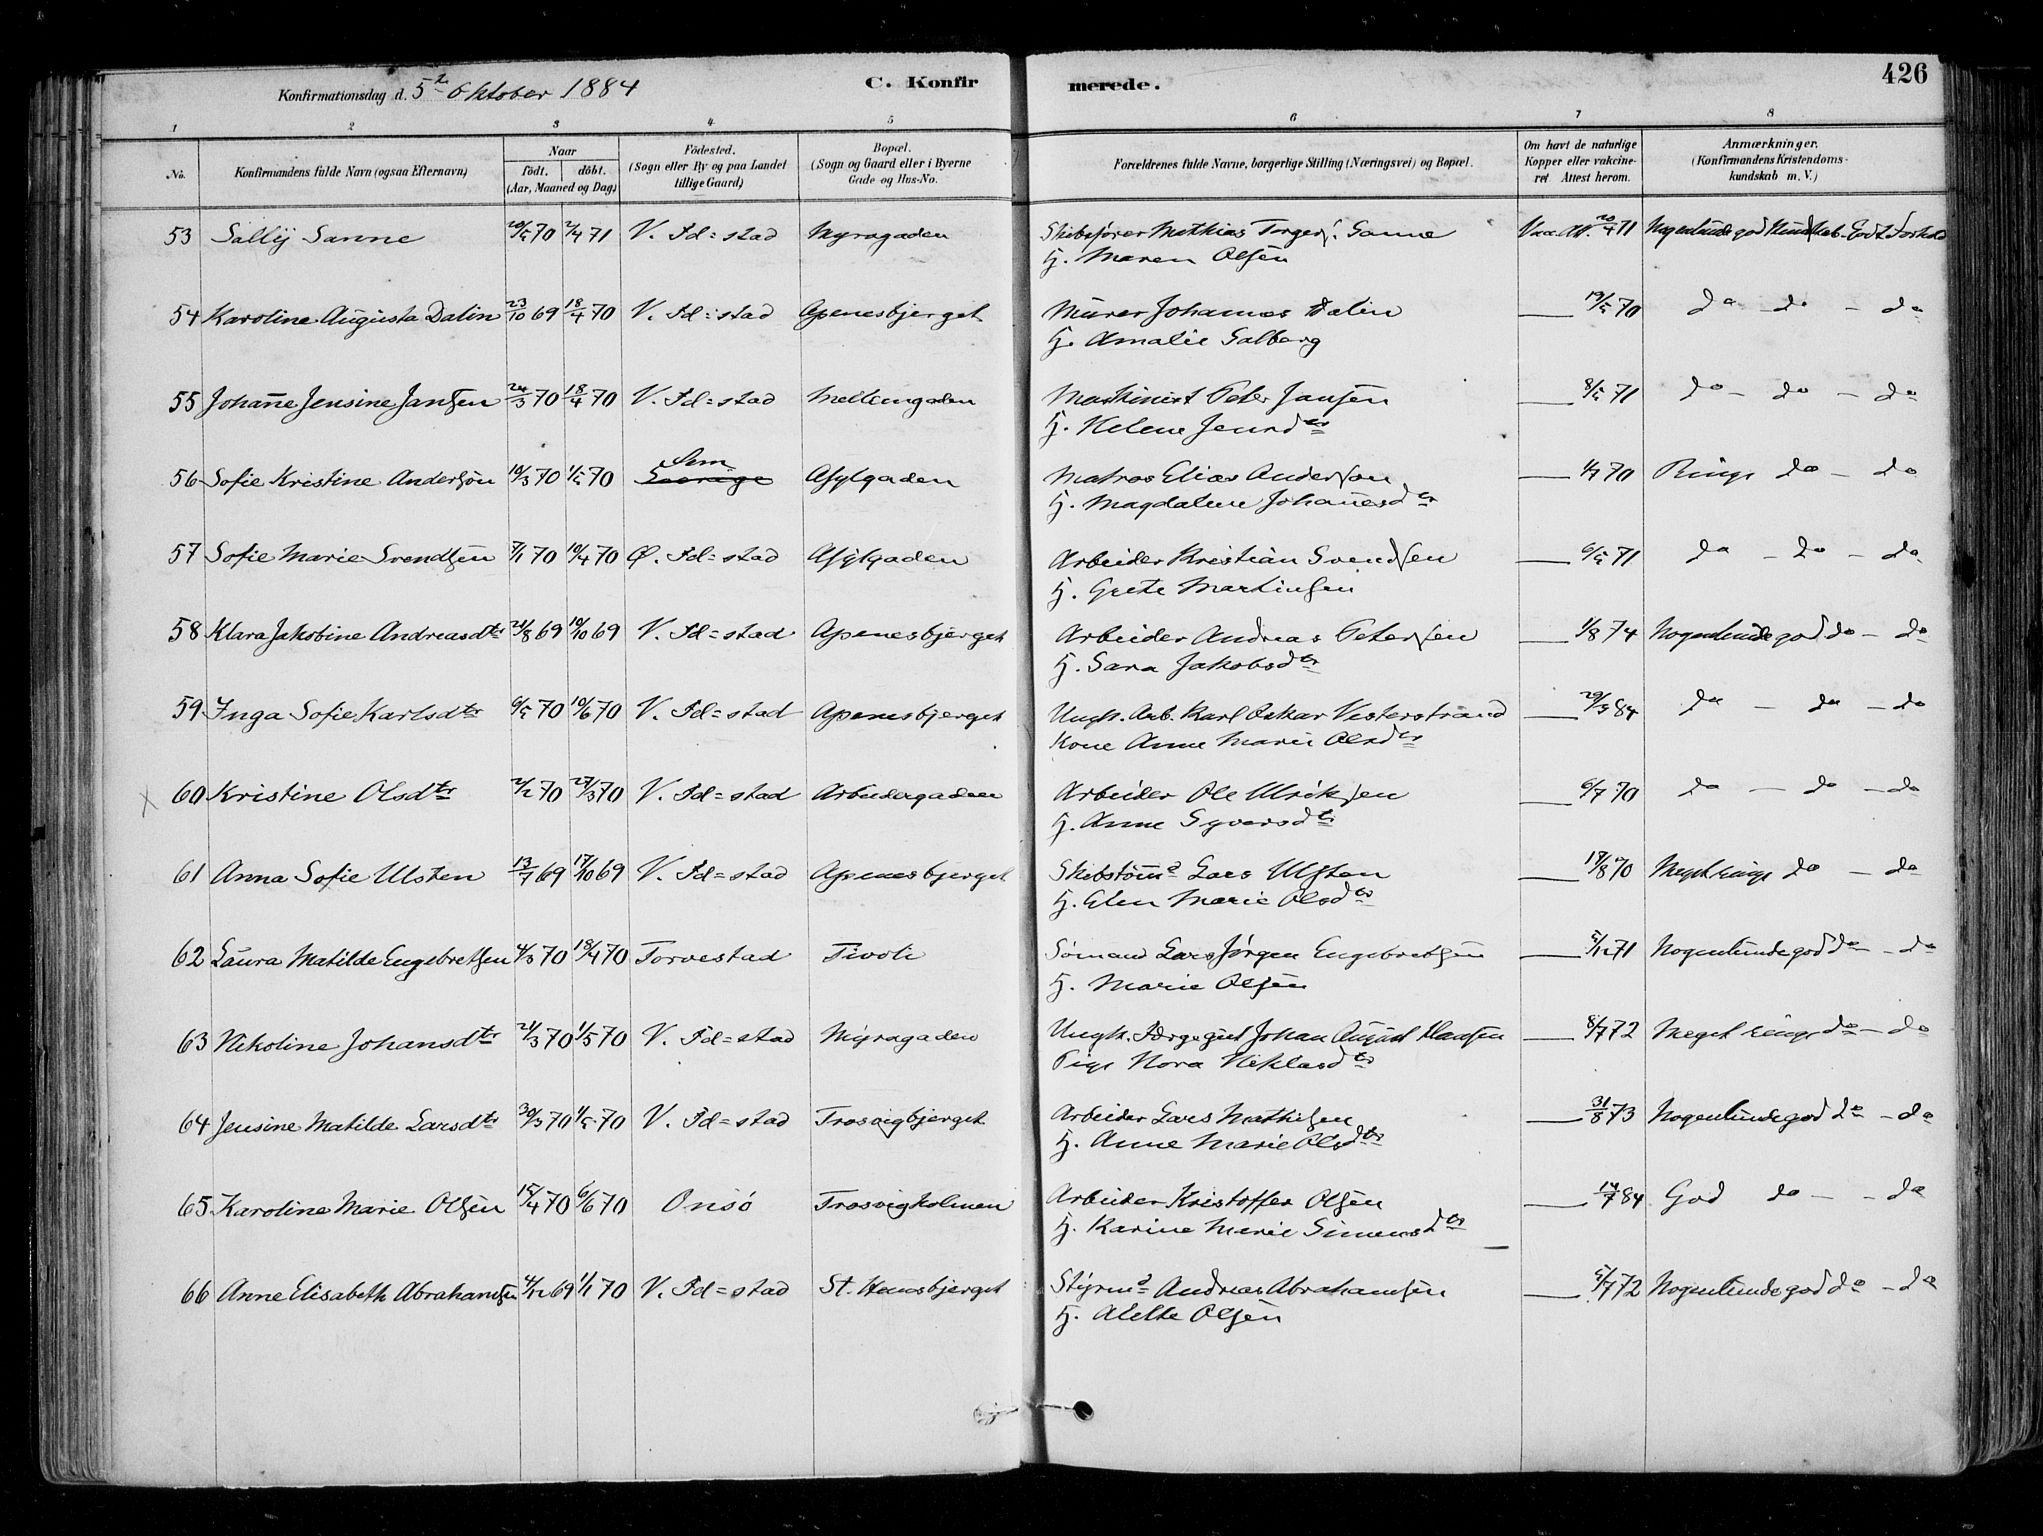 Konfirmationsdag d. 5te Oktober 1884
C. Konfirmerede.
426
1 2 3 4 5 6 7 8
No. Konfirmandens fulde Navn (ogsaa Efternavn) Naar født. døbt. (Aar, Maaned og Dag) Fødested. (Sogn eller By og paa Landet tillige Gaard) Bopæl. (Sogn og Gaard eller i Byerne Gade og Hus-No. Forældrenes fulde Navne, borgerlige Stilling (Næringsvei) og Bopæl. Om havt de naturlige Kopper eller vakcineret Attest herom. Anmærkninger. (Konfirmandens Kristendomskundskab m. V.)
53 Sally Sanne 20/5 70 2/4 71 V. Fd=stad Myragaden Skibsfører Mathias Torgers. Sanne Vac. Att. 20/4 71 Nogenlunde god Kundskab. Godt Forhold
H. Maren Olsen
54 Karoline Augusta Dalin 23/10 69 18/4 70 V. Fd=stad Apenesbjerget Murer Johannes Dalin — 19/5 70 do - do - do
H. Amalie Salberg
55 Johanne Jensine Jansen 24/3 70 18/4 70 V. Fd=stad Mellemgaden Maskinist Peter Jansen — 8/5 71 do - do - do
H. Helene Jensdtr
56 Sofie Kristine Anderson 10/3 70 1/5 70 Sem Asylgaden Matros Elias Anderson — 1/7 70 Ringe do - do
H. Magdalene Johannesdtr
57 Sofie Marie Svendsen 7/1 70 10/4 70 Ø. Fd=stad Asylgaden Arbeider Kristian Svendsen — 6/5 71 do - do - do
H. Grete Martinsen
58 Klara Jakobine Andreasdtr 21/8 69 10/10 69 V. Fd=stad Apenesbjerget Arbeider Andreas Petersen — 1/8 74 Nogenlunde god do - do
H. Sara Jakobsdtr
59 Inga Sofie Karlsdtr 6/5 70 10/6 70 V. Fd=stad Apenesbjerget Ungk. Arb. Karl Oskar Vesterstrand — 29/9 84 do - do - do
Kone Anne Marie Olsdtr
60 Kristine Olsdtr 2/2 70 27/3 70 V. Fd=stad Arbeidergaden Arbeider Ole Ulriksen — 6/7 70 do - do - do
H. Anne Syversdtr
61 Anna Sofie Ulsten 13/7 69 17/10 69 V. Fd=stad Apenesbjerget Skibstømmd Lars Ulsten — 17/8 70 Meget ringe do - do
H. Elen Marie Olsdtr
62 Laura Matilde Engebretsen 4/3 70 18/4 70 Torvestad Tivoli Sømand Lars Jørgen Engebretsen — 5/12 71 Nogenlunde god do - do
H. Marie Olsen
63 Nikoline Johansdtr 21/3 70 1/5 70 V. Fd=stad Myragaden Ungk. Johan August Hansen — 8/7 72 Meget ringe do - do
Pige Nora Niklasdtr
64 Jensine Matilde Larsdtr 30/3 70 1/5 70 V. Fd=stad Trosvigbjerget Arbeider Lars Mathisen — 31/8 73 Nogenlunde god do - do
H. Anne Marie Olsdtr
65 Karoline Marie Olsen 15/4 70 6/6 70 Onsø Trosvigholmen Arbeider Kristoffer Olsen — 14/7 84 God do - - do
H. Karine Marie Simensdtr
66 Anne Elisabeth Abrahamsen 4/12 69 1/1 70 V. Fd=stad St. Hansbjerget Styrmd Andreas Abrahamsen — 5/7 72 Nogenlunde god do - do
H. Alette Olsen